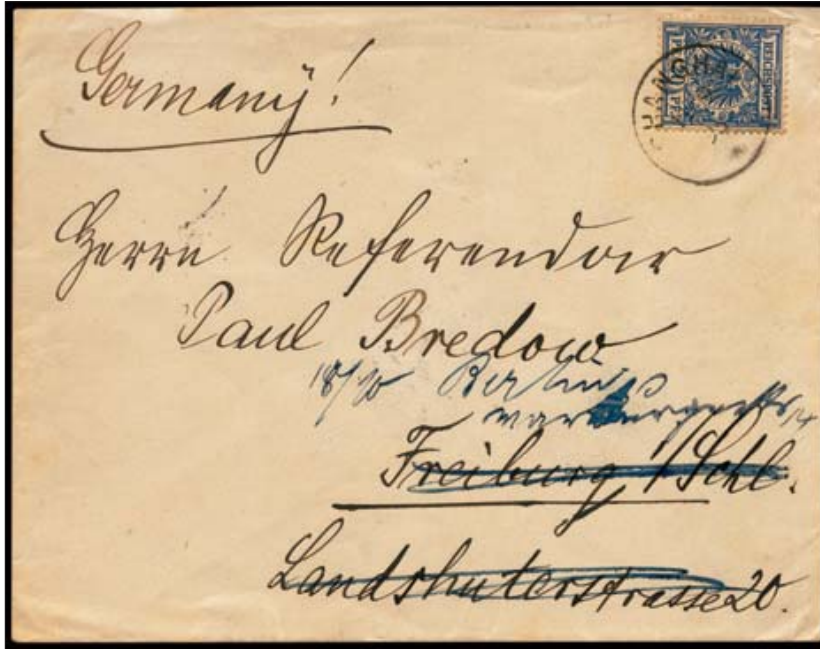 Germany!
REICHSPOST
SHANGHAI
Herrn Referendar
Paul Bredow
18/10 Berlin
Freiburg i/Schl.
Landshuterstrasse 20.